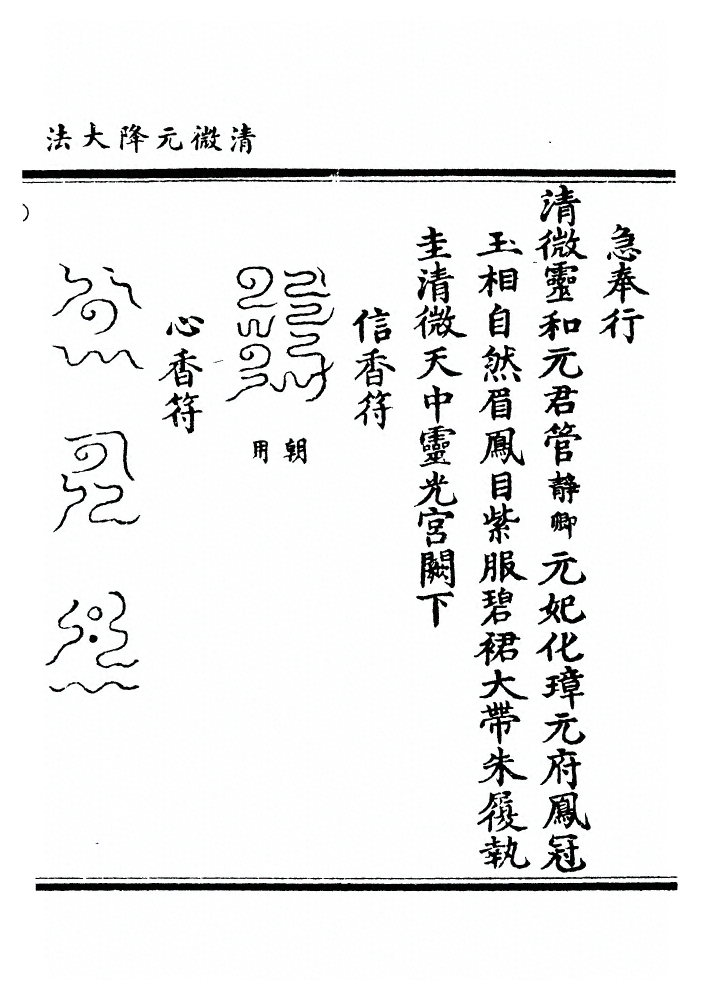 清微元降大法
急奉行
清微靈和元君管靜卿元妃化璋元府鳳冠
玉相自然眉鳳目紫服碧裙大帶朱履執
圭清微天中靈光宮闕下
信香符
朝用
心香符